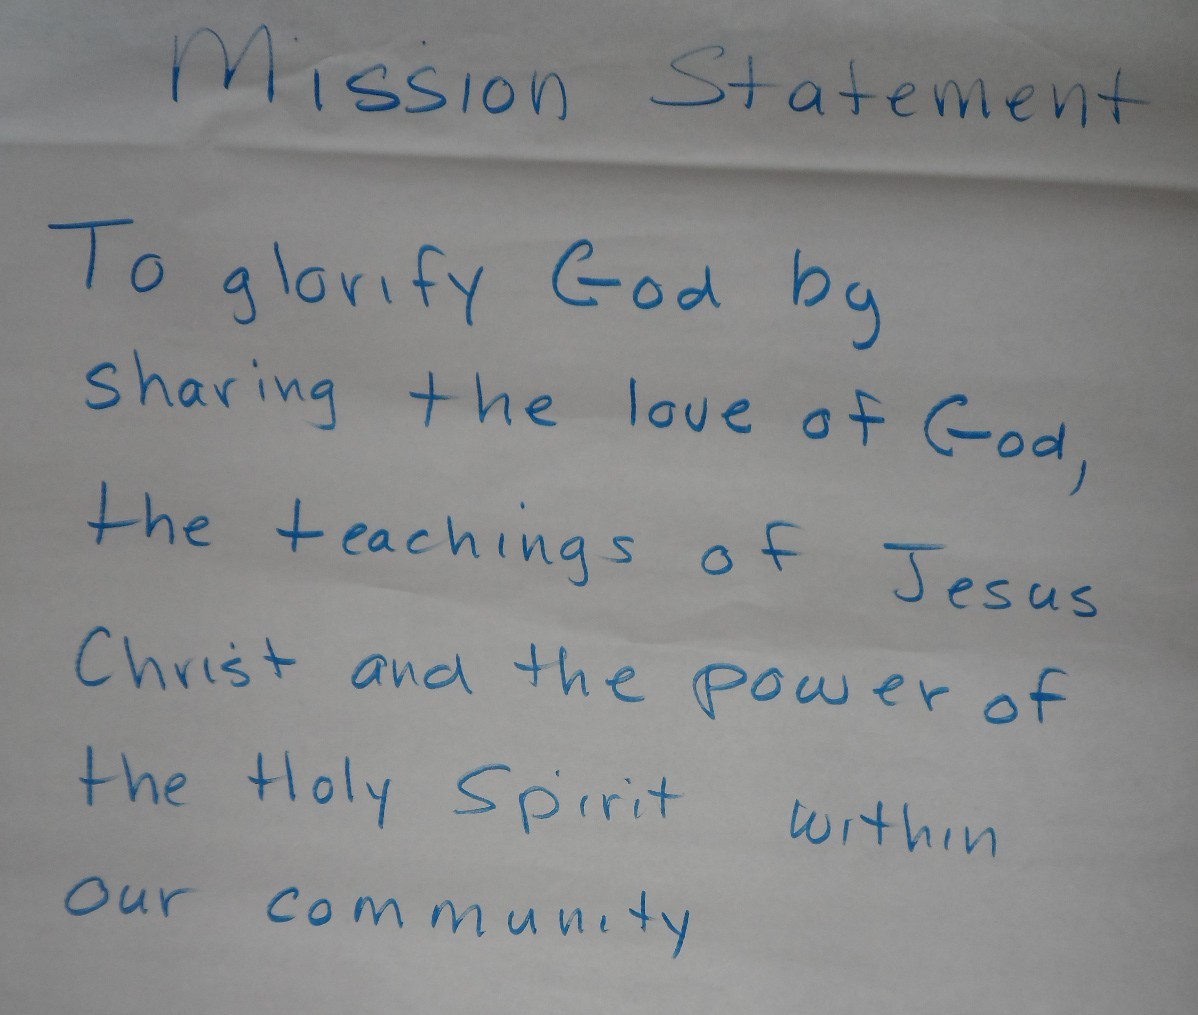 Mission Statement
To glorify God by
sharing the love of God,
the teachings of Jesus
Christ and the power of
the Holy Spirit within
our community